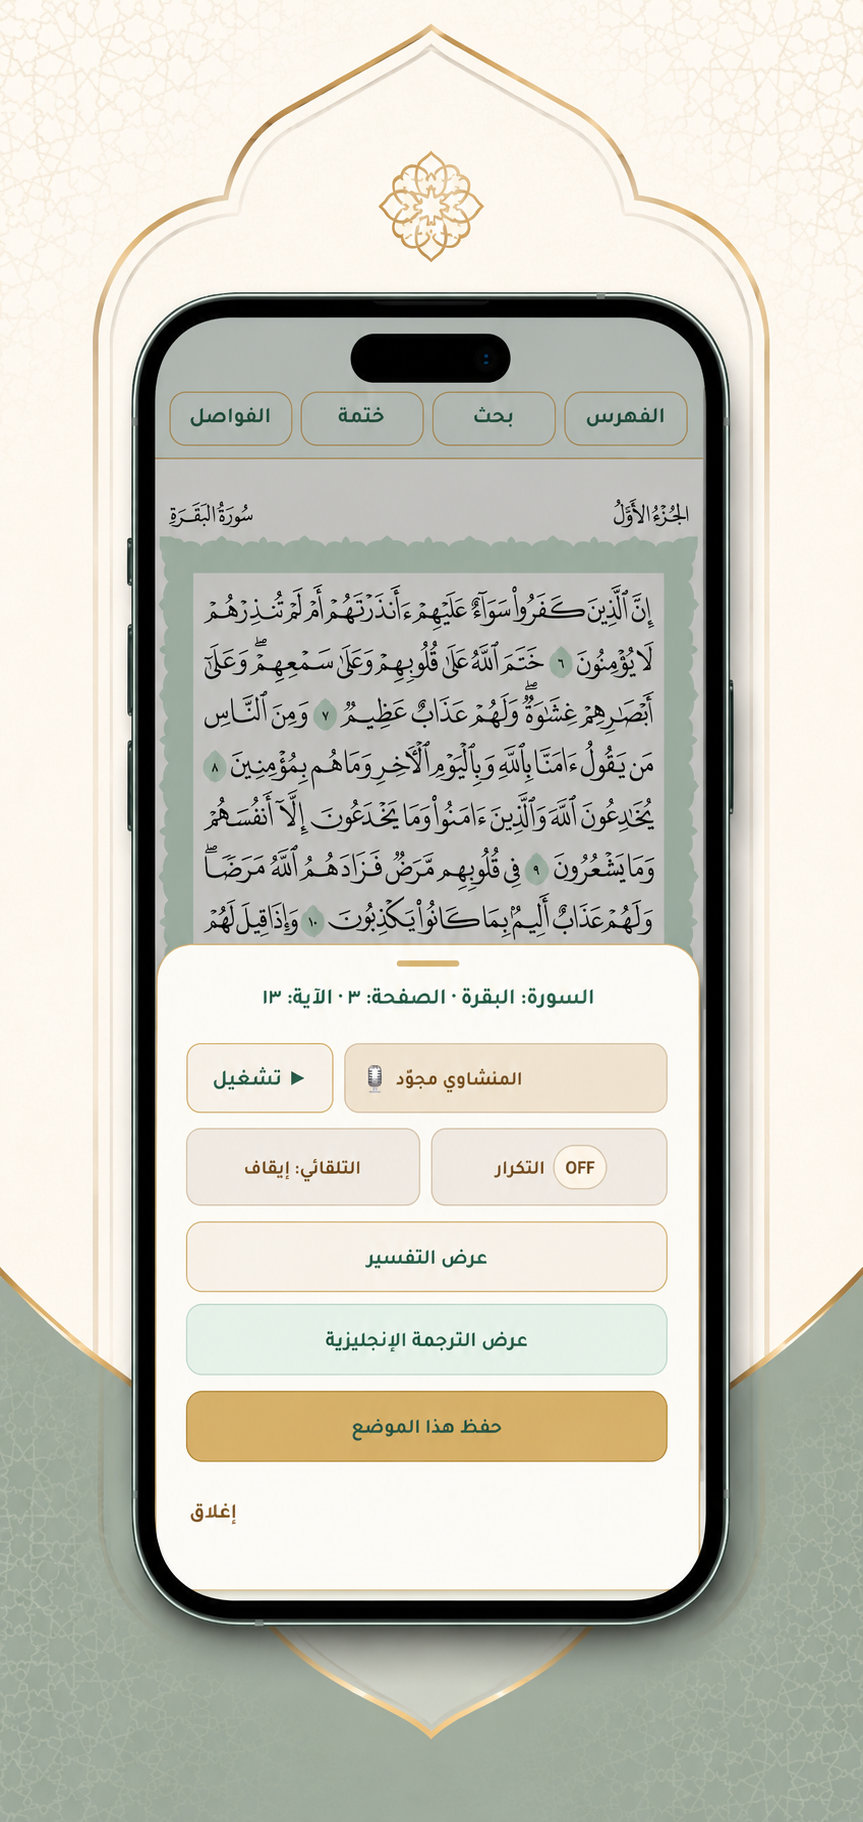 الفهرس بحث ختمة الفواصل
الجُزْءُ الأَوَّلُ سُورَةُ البَقَرَةِ
إِنَّ ٱلَّذِينَ كَفَرُوا۟ سَوَآءٌ عَلَيْهِمْ ءَأَنذَرْتَهُمْ أَمْ لَمْ تُنذِرْهُمْ
لَا يُؤْمِنُونَ ٦ خَتَمَ ٱللَّهُ عَلَىٰ قُلُوبِهِمْ وَعَلَىٰ سَمْعِهِمْ ۖ وَعَلَىٰٓ
أَبْصَٰرِهِمْ غِشَٰوَةٌ ۖ وَلَهُمْ عَذَابٌ عَظِيمٌ ٧ وَمِنَ ٱلنَّاسِ
مَن يَقُولُ ءَامَنَّا بِٱللَّهِ وَبِٱلْيَوْمِ ٱلْـَٔاخِرِ وَمَا هُم بِمُؤْمِنِينَ ٨
يُخَٰدِعُونَ ٱللَّهَ وَٱلَّذِينَ ءَامَنُوا۟ وَمَا يَخْدَعُونَ إِلَّآ أَنفُسَهُمْ
وَمَا يَشْعُرُونَ ٩ فِى قُلُوبِهِم مَّرَضٌ فَزَادَهُمُ ٱللَّهُ مَرَضًا ۖ
وَلَهُمْ عَذَابٌ أَلِيمٌۢ بِمَا كَانُوا۟ يَكْذِبُونَ ١٠ وَإِذَا قِيلَ لَهُمْ
السورة: البقرة · الصفحة: ٣ · الآية: ١٣
المنشاوي مجوّد
▶ تشغيل
OFF التكرار
التلقائي: إيقاف
عرض التفسير
عرض الترجمة الإنجليزية
حفظ هذا الموضع
إغلاق